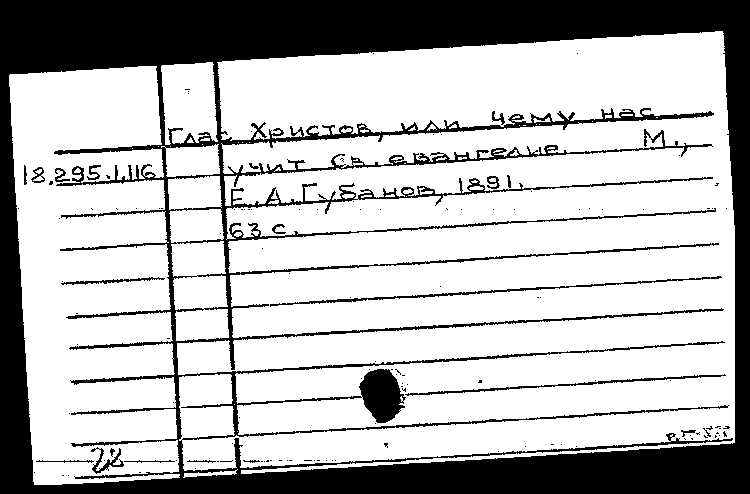 Глас Христов, или чему нас
18.295.1.116 учит Св. евангелие. М.,
Е.А.Губанов, 1891.
63 с.
28